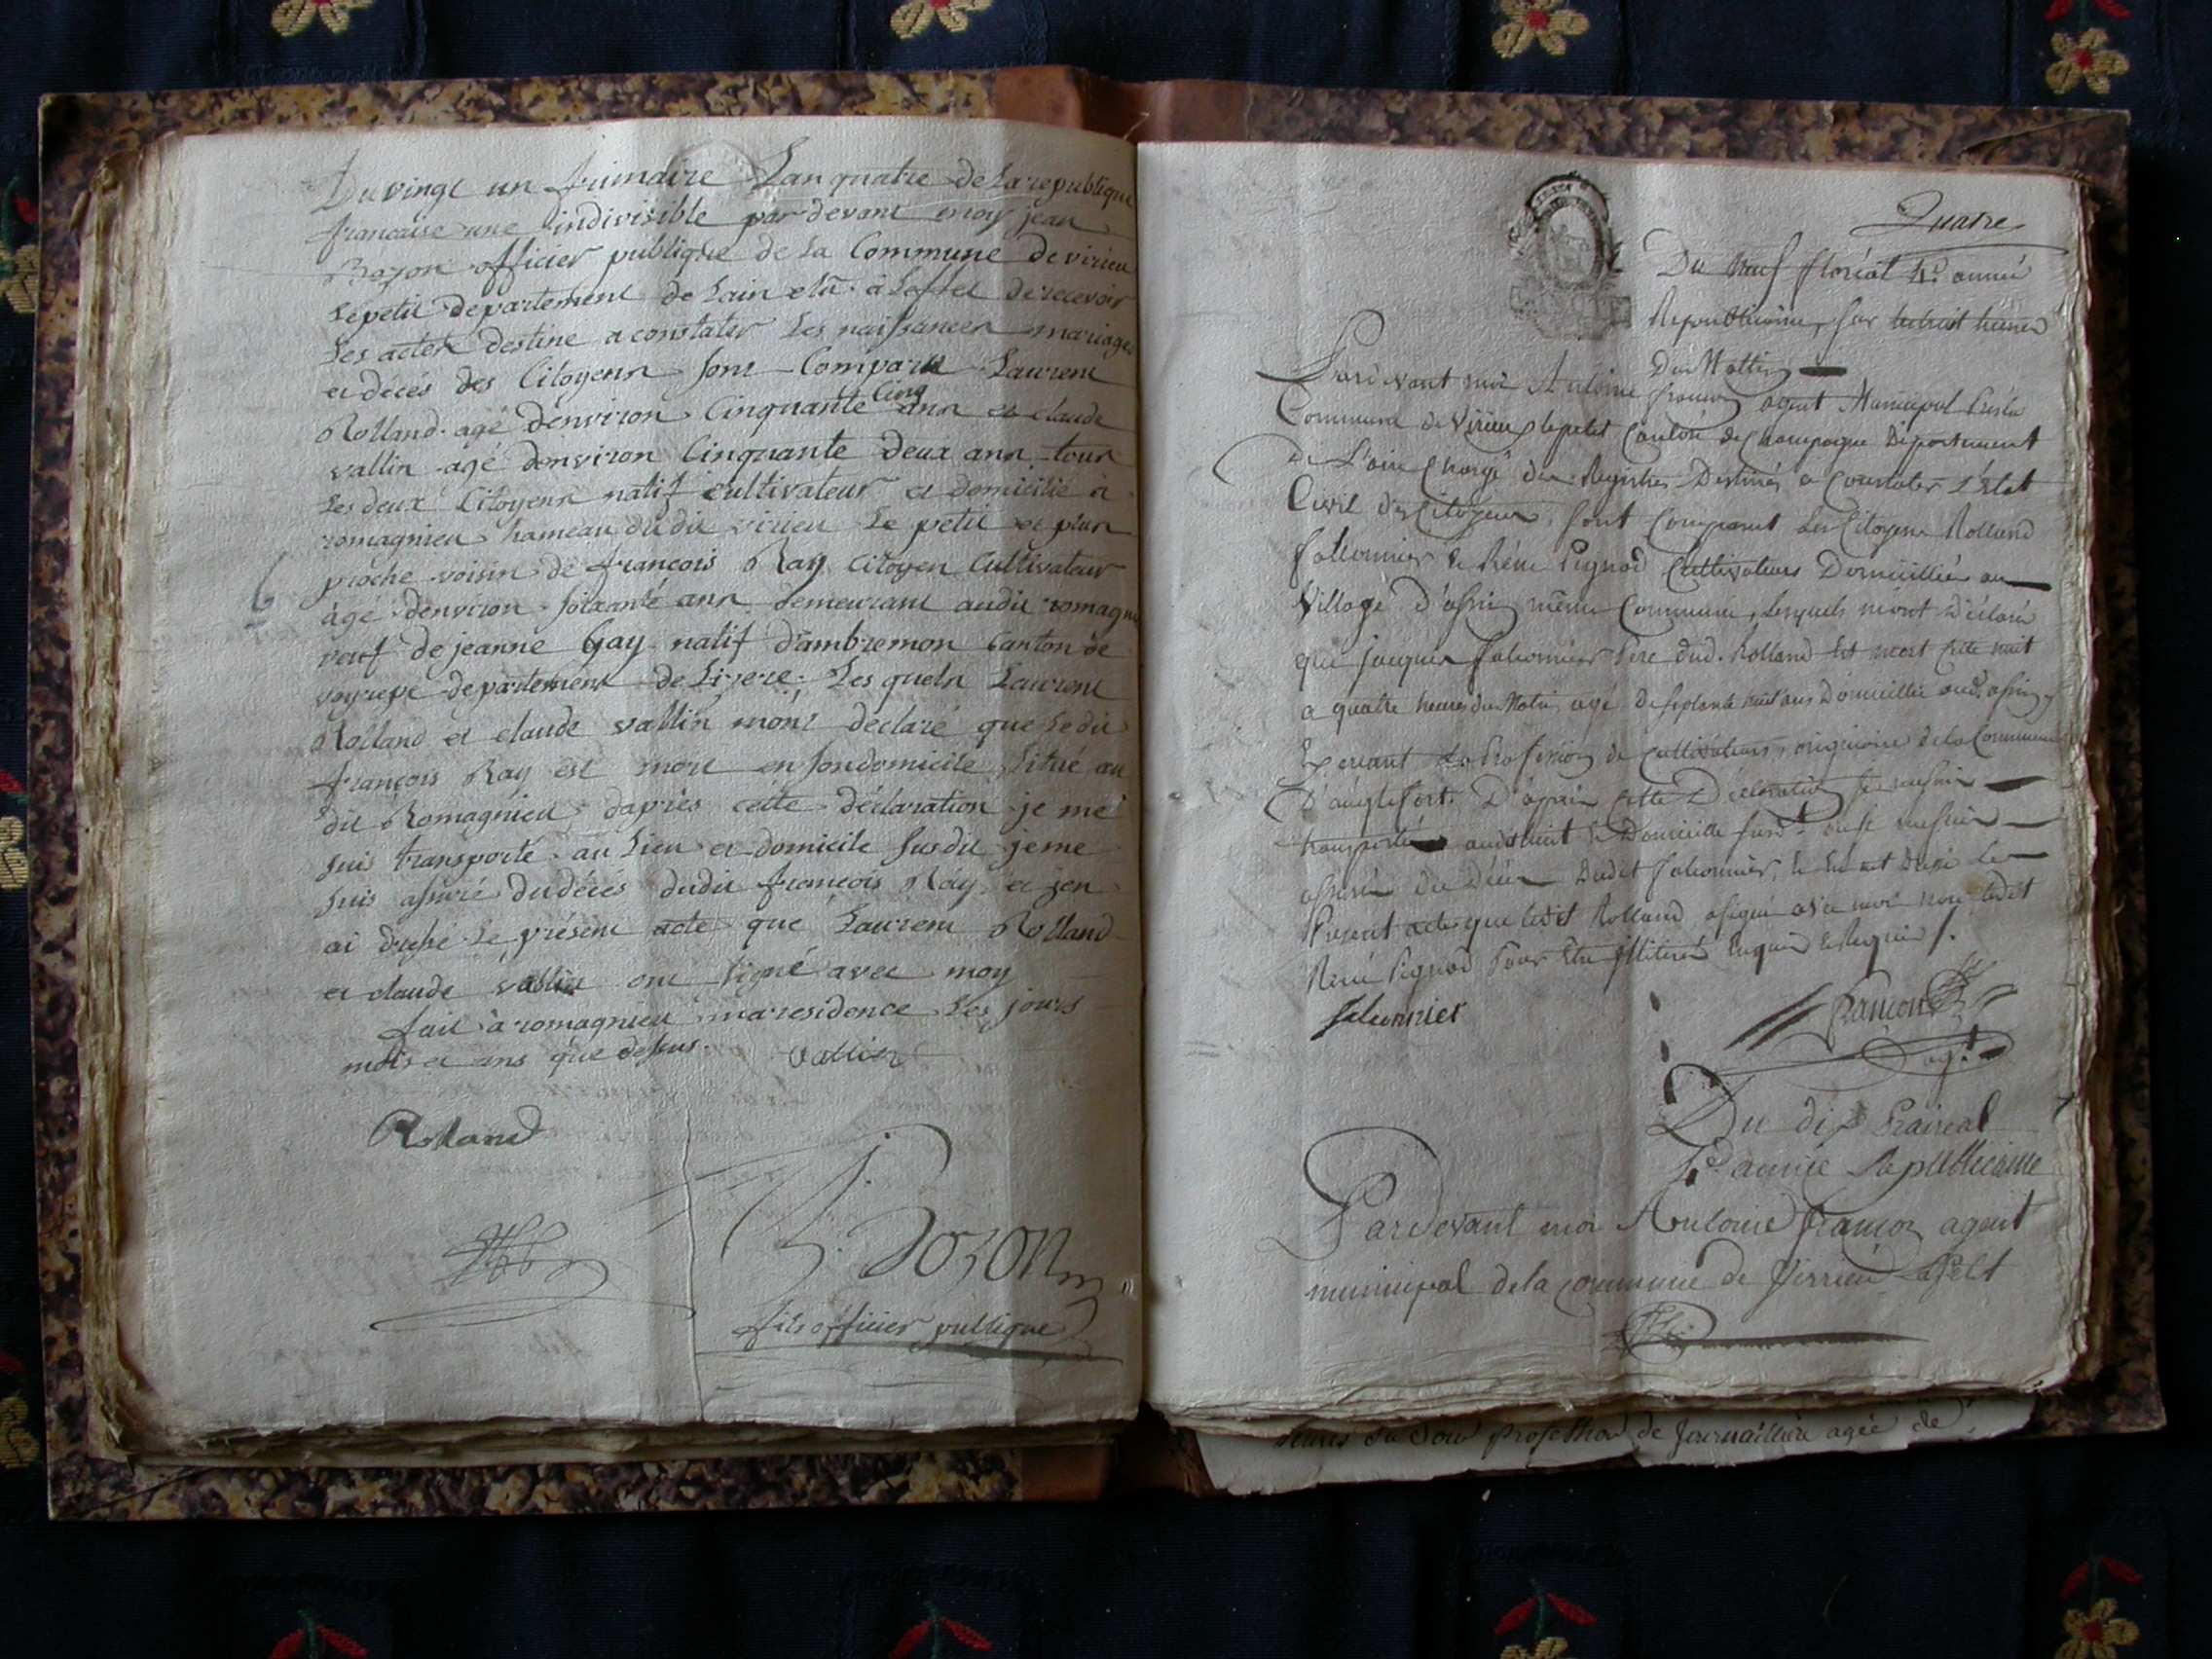 Du vingt un frimaire Lan quatre de La republique
francaise une indivisible par devant moy jean
Bozon officier publique de La Commune de virieu
Le petit departement de Lain elû à Leffet de recevoir
Les actes destine a constater Les naissances mariages
et décés des Citoyens sont Comparu Laurent
Rolland agé denviron Cinquante Cinq ans et claude
vallin agé denviron Cinquante deux ans tous
Les deux Citoyens natif cultivateur et domicilié à
romagnieu hameau du dit virieu Le petit et plus
proche voisin de françois Ray Citoyen Cultivateur
âgé denviron soixante ans demeurant audit romagnieu
veuf de jeanne Gay natif d'ambremon Canton de
departement de Lisere Les quels Laurent
Rolland et claude vallin mont declaré que Le dit
françois Ray est mort en son domicile Situé au
dit Romagnieu daprès cette déclaration je me
suis transporté au Lieu et domicile Susdit je me
suis assuré du décés dudit françois Ray et jen
ai dressé Le présent acte que Laurent Rolland
et claude vallin ont signé avec moy
fait à romagnieu ma residence Les jours
mois et ans que dessus. vallin
Rolland
Bozon
fils officier publique
Quatre
Du Neuf floréal 4e année
Republicaine, sur huit heures
Du Mattin
Pardevant moi Antoine françon agent Municipal de la
Commune de Virieux lepetit Canton de Champagne Département
De L'ain Chargé des Registres Destinés a Constater L'état
Civil des Citoyens, sont Comparus Les Citoyens Rolland
falconnier & René Pignod Cultivateurs Domiciliés au
Village D'assin même Commune, Lesquels m'ont Déclaré
que jacques falconnier Père dud. Rolland Est mort Cette nuit
a quatre heures du Matin agé de septante huit ans Domicillié aud. assin
Exercant La Profession de Cultivateur, originaire de la Commune
D'anglefort. D'après Cette Déclaration je me suis
transporté au Domicille susd.t ou je me suis
assuré du Décès Dudit falconnier, & En ait Dressé Le
Présent acte que ledit Rolland a signé avec moi non ledit
René Pignod Pour Etre illiteré Enquis & Requis /.
falconnier
françon
ag.t
Du dix Prairial
4e année Republicaine
Pardevant moi Antoine françon agent
municipal de la commune de Virrieu Lepetit
heures du Soir profession de Journaillière agée de